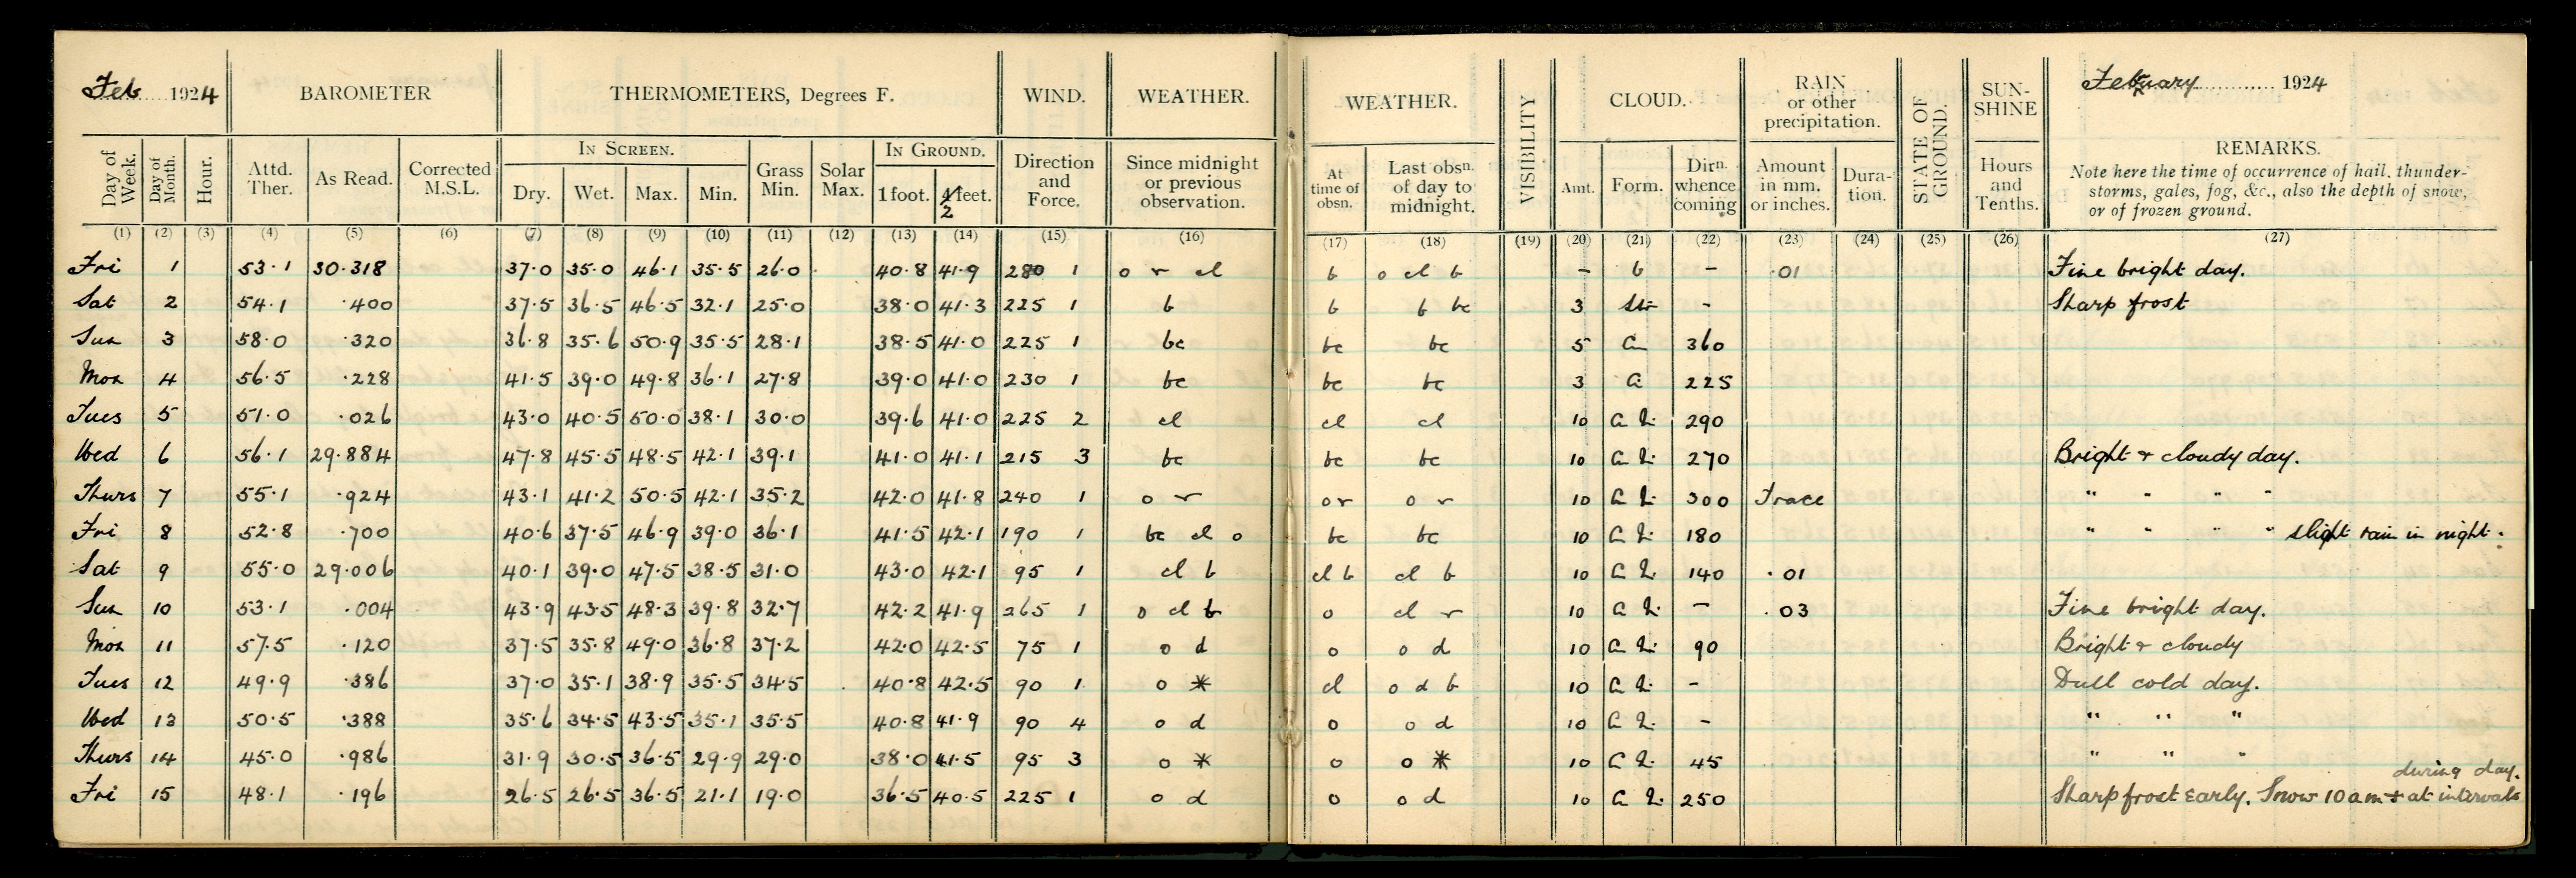 Feb 1924 BAROMETER THERMOMETERS, Degrees F. WIND. WEATHER. WEATHER. VISIBILITY CLOUD. RAIN or other precipitation. STATE OF GROUND. SUN-SHINE February 1924
Day of Week. Day of Month. Hour. Attd. Ther. As Read. Corrected M.S.L. IN SCREEN. Dry. Wet. Max. Min. Grass Min. Solar Max. IN GROUND. 1 foot. 4 2 feet. Direction and Force. Since midnight or previous observation. At time of obsn. Last obsn. of day to midnight. Amt. Form. Dirn. whence coming Amount in mm. or inches. Dura-tion. Hours and Tenths. REMARKS.
Note here the time of occurrence of hail, thunder-
storms, gales, fog, &c., also the depth of snow,
or of frozen ground.
(1) (2) (3) (4) (5) (6) (7) (8) (9) (10) (11) (12) (13) (14) (15) (16) (17) (18) (19) (20) (21) (22) (23) (24) (25) (26) (27)
Fri 1 53·1 30·318 37·0 35·0 46·1 35·5 26·0 40·8 41·9 280 1 o r cl b o cl b - b - ·01 Fine bright day.
Sat 2 54·1 ·400 37·5 36·5 46·5 32·1 25·0 38·0 41·3 225 1 b b b bc 3 - Sharp frost
Sun 3 58·0 ·320 36·8 35·6 50·9 35·5 28·1 38·5 41·0 225 1 bc bc bc 5 360
Mon 4 56·5 ·228 41·5 39·0 49·8 36·1 27·8 39·0 41·0 230 1 bc bc bc 3 225
Tues 5 51·0 ·026 43·0 40·5 50·0 38·1 30·0 39·6 41·0 225 2 cl cl cl 10 290
Wed 6 56·1 29·884 47·8 45·5 48·5 42·1 39·1 41·0 41·1 215 3 bc bc bc 10 270 Bright & cloudy day.
Thurs 7 55·1 ·924 43·1 41·2 50·5 42·1 35·2 42·0 41·8 240 1 o r or o r 10 300 Trace " " " "
Fri 8 52·8 ·700 40·6 37·5 46·9 39·0 36·1 41·5 42·1 190 1 bc cl o bc bc 10 180 " " " " slight rain in night.
Sat 9 55·0 29·006 40·1 39·0 47·5 38·5 31·0 43·0 42·1 95 1 cl b cl b cl b 10 140 ·01
Sun 10 53·1 ·004 43·9 43·5 48·3 39·8 32·7 42·2 41·9 265 1 o cl b o cl r 10 - ·03 Fine bright day.
Mon 11 57·5 ·120 37·5 35·8 49·0 36·8 37·2 42·0 42·5 75 1 o d o o d 10 90 Bright & cloudy
Tues 12 49·9 ·386 37·0 35·1 38·9 35·5 34·5 40·8 42·5 90 1 o * cl o d b 10 - Dull cold day.
Wed 13 50·5 ·388 35·6 34·5 43·5 35·1 35·5 40·8 41·9 90 4 o d o o d 10 - " " "
Thurs 14 45·0 ·986 31·9 30·5 36·5 29·9 29·0 38·0 41·5 95 3 o * o o * 10 45 " " "
Fri 15 48·1 ·196 26·5 26·5 36·5 21·1 19·0 36·5 40·5 225 1 o d o o d 10 250 Sharp frost early. Snow 10 am & at intervals
during day.